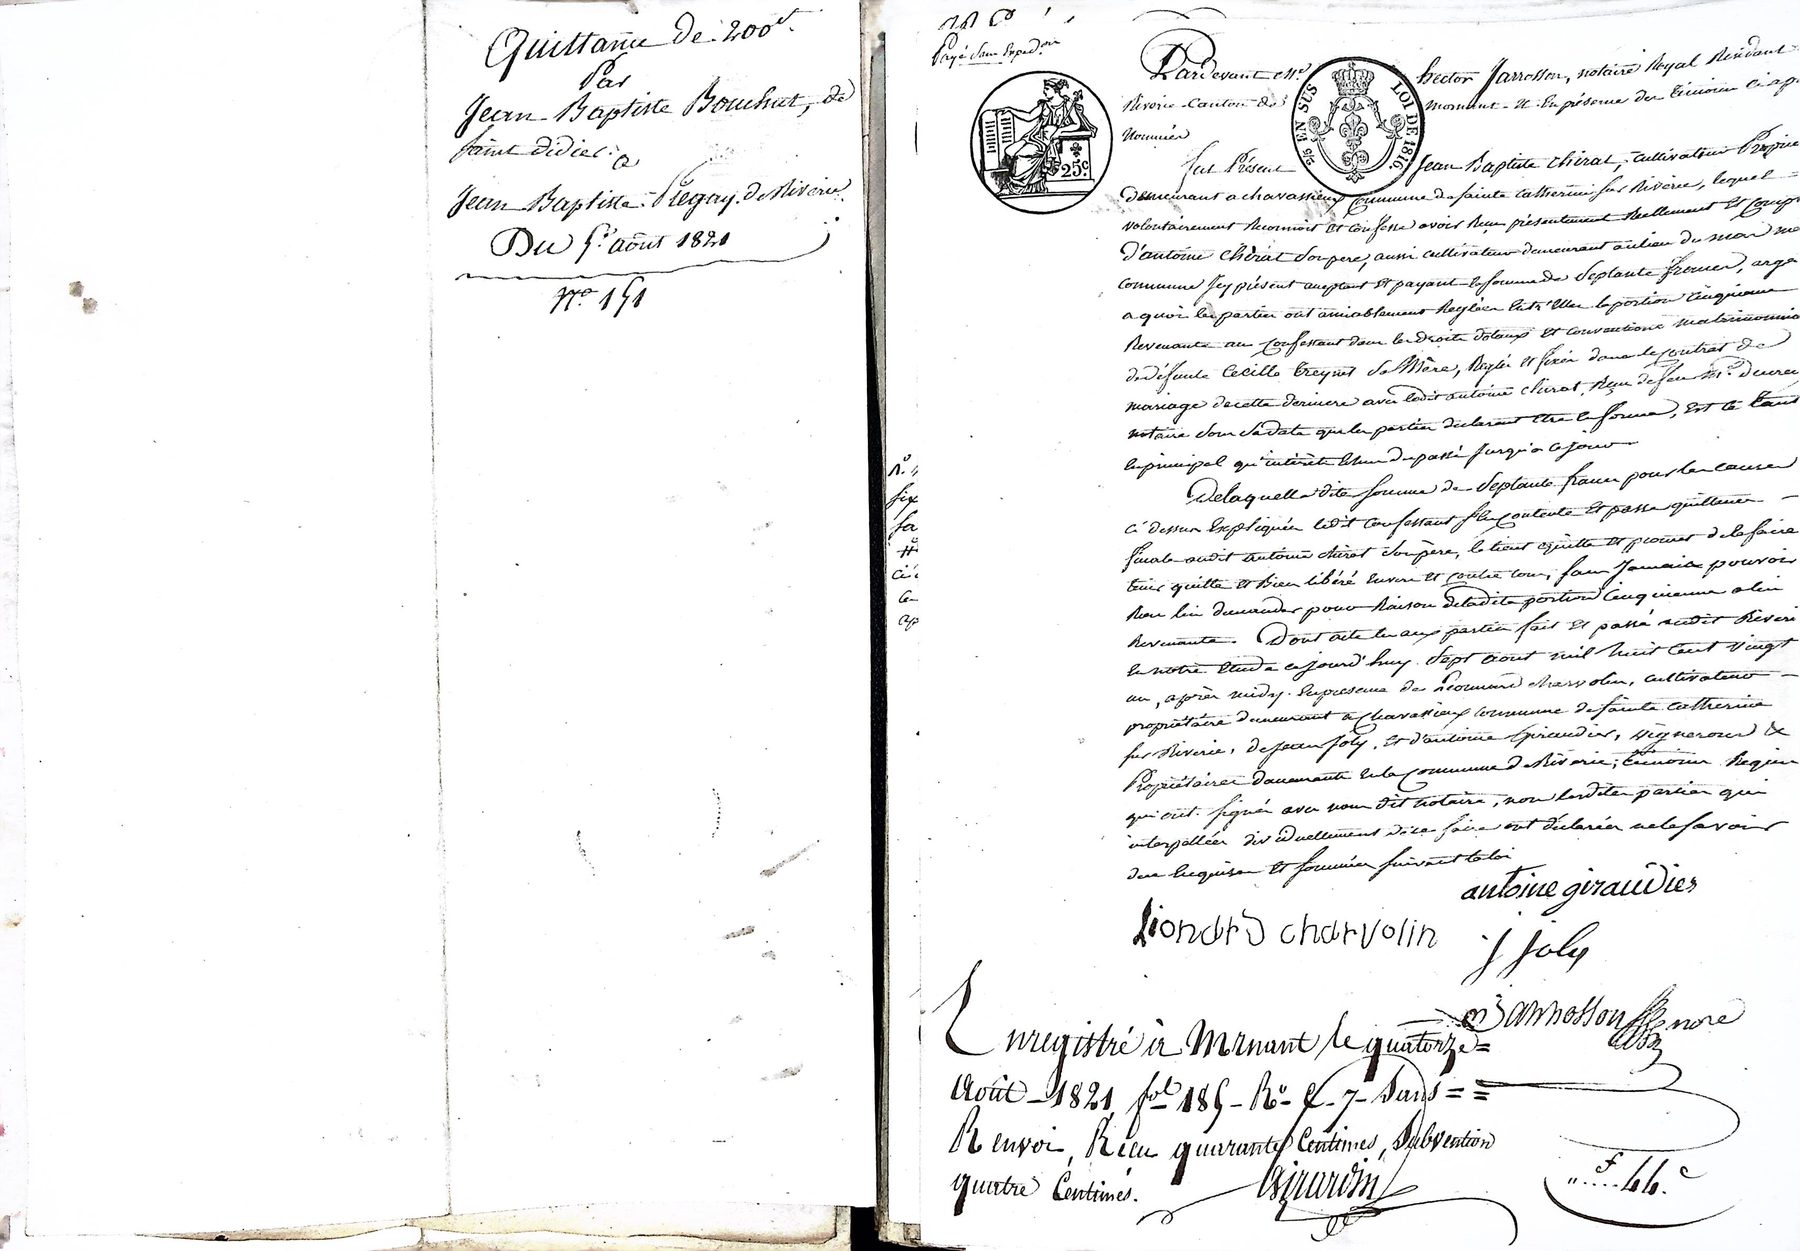 Quittance de 200 f.
Par
Jean Baptiste Bouchut, de
saint didier.
a
Jean Baptiste Régay, de Riverie.
Du 5 août 1821
N.º 151
N.º
six
sa
ci
Payé sans Exped.on
Pardevant M.e hector Jarrosson, notaire Royal Résidant
Riverie Canton de mornant et En présence des témoins ci ap
Nommés
EN SUS LOI DE 1816
25 c.
fut Présent Jean Baptiste chirat, cultivateur Proprié
demeurant a chavassieux Commune de sainte catherine sur Riverie, lequel =
volontairement Reconnoit et confesse avoir Reçu présentement Réellement et comp
d'antoine chirat son pere, aussi cultivateur demeurant au lieu du
commune Icy présent acceptant et payant la somme de Septante francs, arge
a quoi les parties ont amiablement Réglée Entr'Elles la portion Cinquieme
Revenante au confessant dans les droits dotaux et conventions matrimonia
de défunte Cecille Sa Mère, Réglés et fixés dans le contrat de
mariage de cette derniere avec ledit antoine chirat, Reçu de feu M.e
notaire sous sa date que les parties déclarent être en forme, Est ce tant
En principal qu'intérêts Echus du passé jusqu'à ce jour
De laquelle dite somme de Septante francs pour les causes
ci dessus Expliquées ledit confessant s'En contente et passe quittance -
finale audit antoine chirat son père, le tient quitte et promet de le faire
tenir quitte et bien libéré Envers et contre tous, sans Jamais pouvoir
Rien lui demander pour Raison de ladite portion Cinquieme a lui
Revenante. Dont acte Lu aux parties fait et passé audit Riveri
En notre Etude cejourd'huy Sept aout mil huit cent vingt
un, après midy. En présence de Léonnard charvolin, cultivateur -
propriétaire demeurant a chavassieux commune de sainte catherine
sur Riverie, de jean joly, et d'antoine Giraudier, vignerons &
Propriétaires demeurants En la Commune de Riverie; témoins Requis
qui ont signés avec nous dit notaire, non lesdites parties qui
interpellées dividuellement de ce faire ont déclarées ne le savoir
de ce Enquises et sommées suivant la loi
antoine giraudier
Liondrd chdrvolin
j joly
Jarrosson nore
Enregistré à Mornant le quatorze =
Août - 1821, fol 185 - R.º C. 7 - Sans = =
Renvoi, Reçu quarante Centimes, Subvention
quatre Centimes.
Girardin
f 44. c